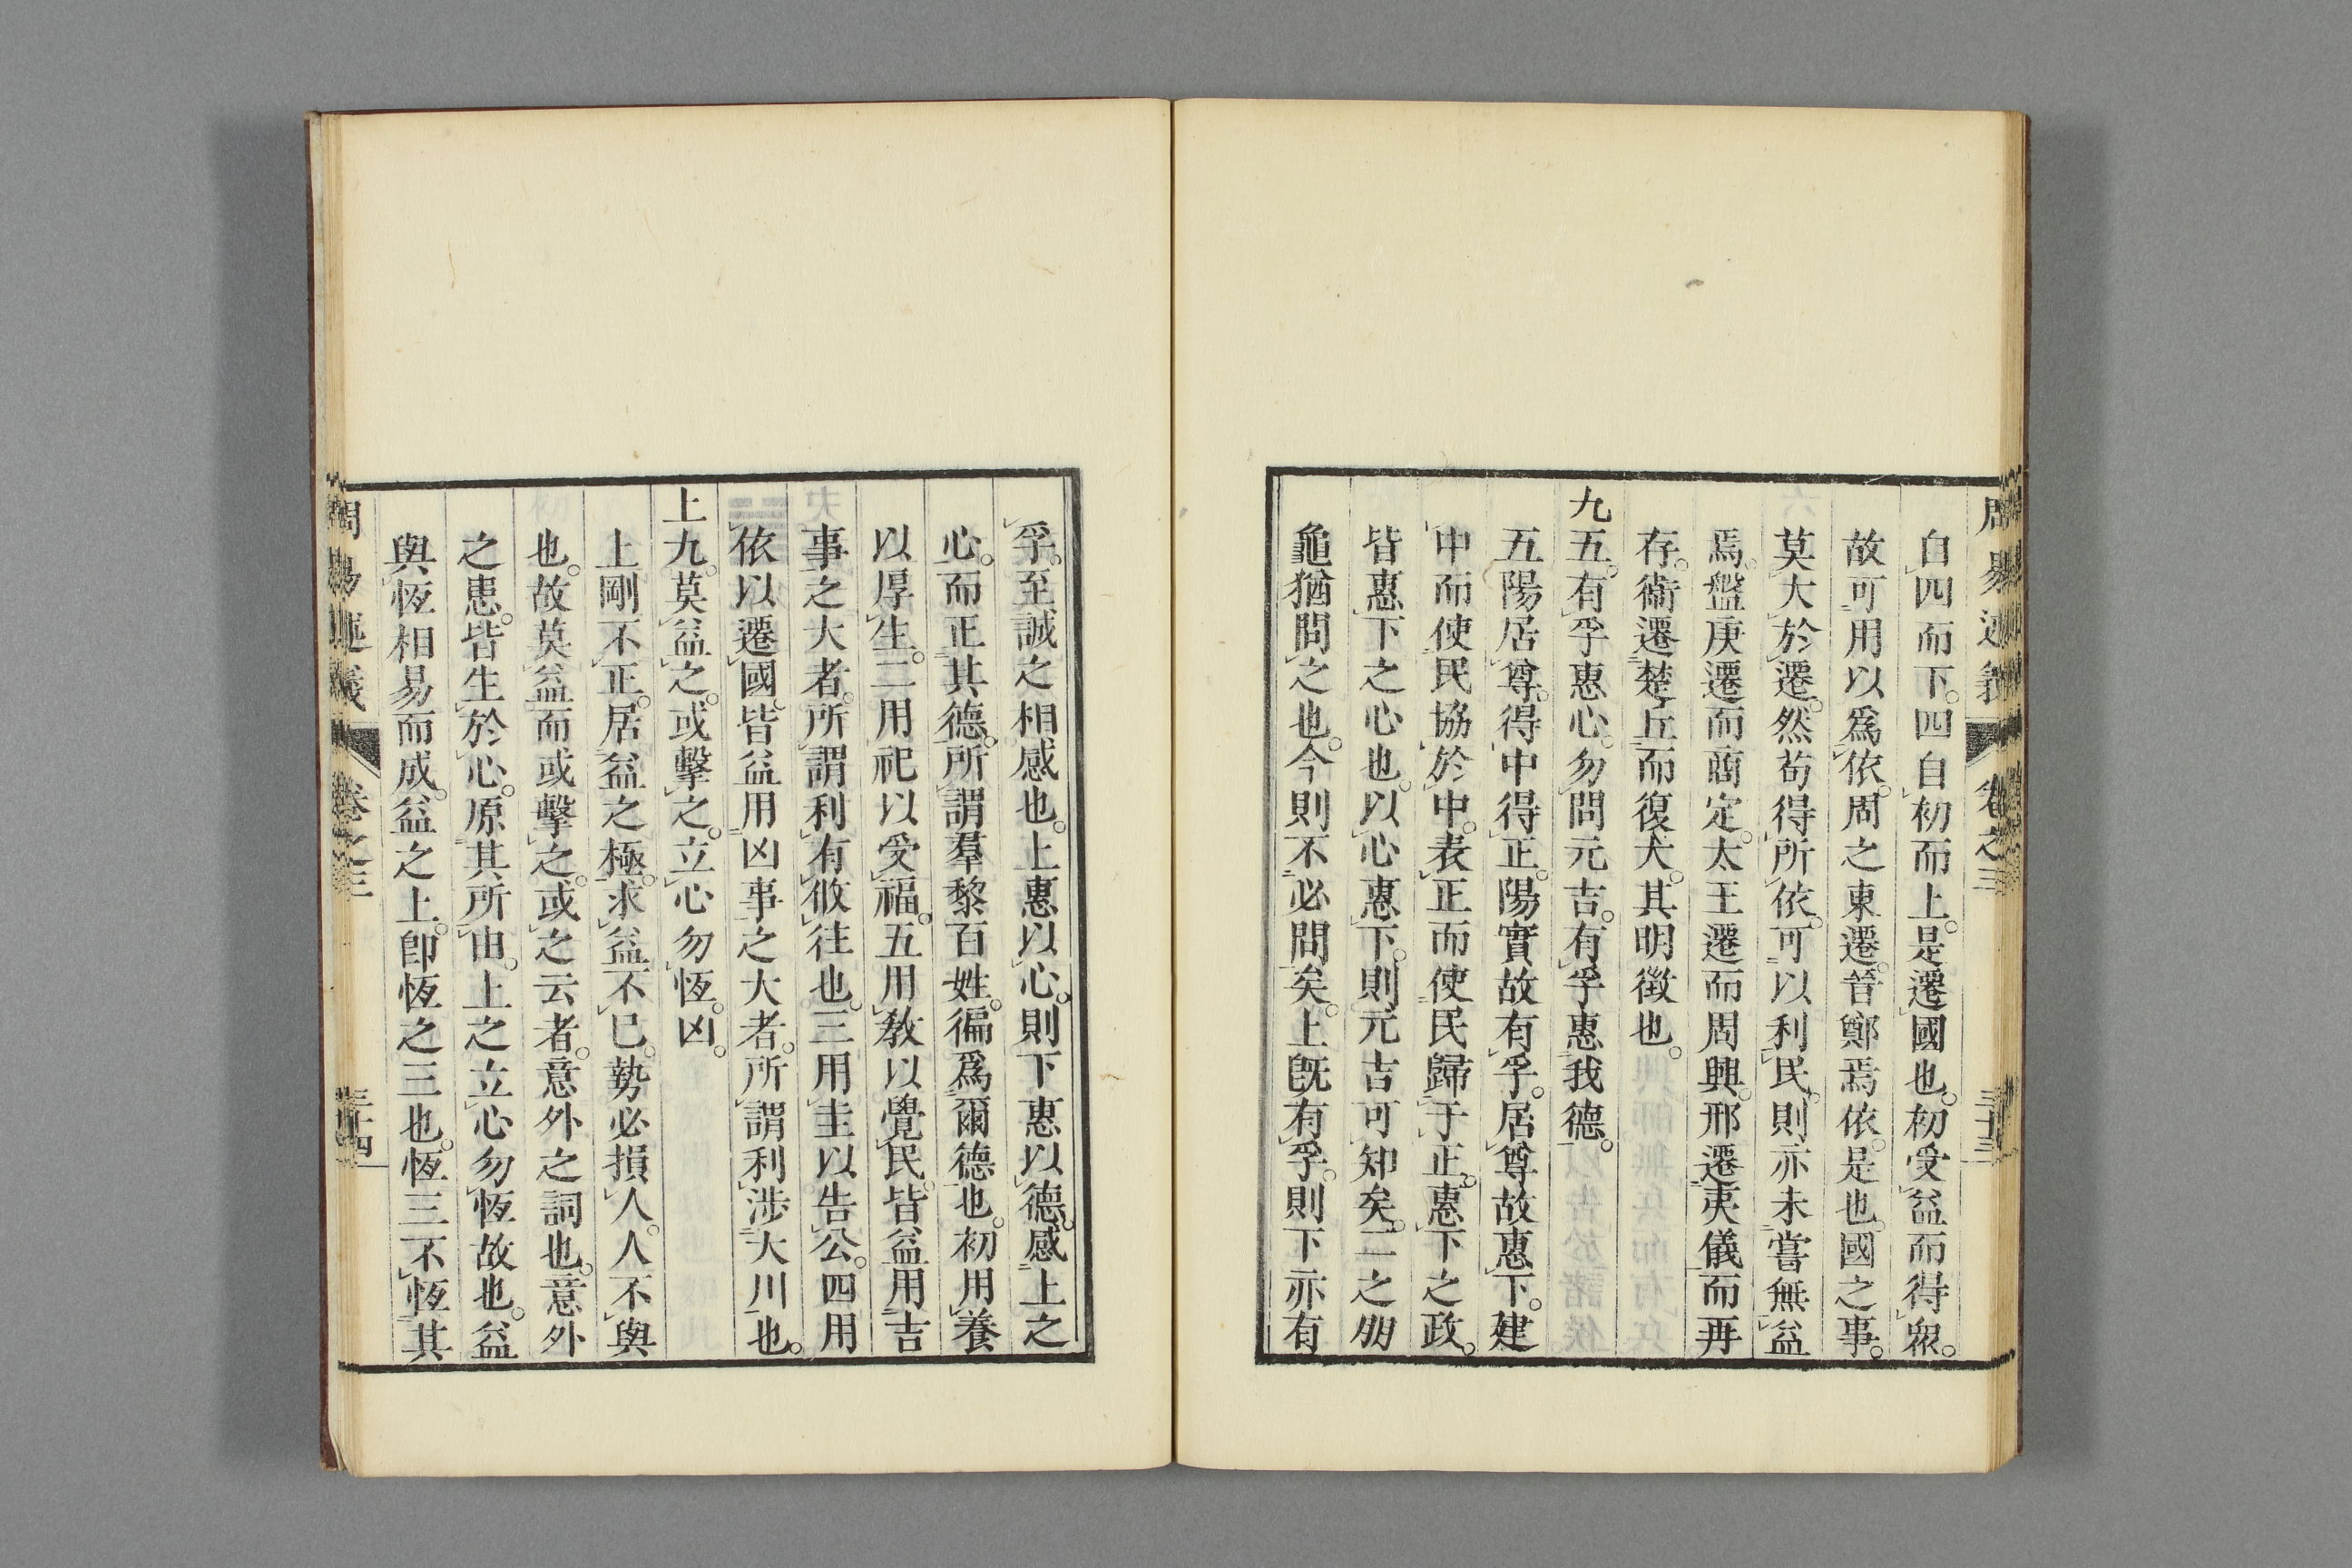 周易述義 卷之三 三十三
自四而下。四自初而上。是遷國也。初受益而得衆。
故可用以爲依。周之東遷。晉鄭焉依。是也。國之事。
莫大於遷。然苟得所依。可以利民。則亦未嘗無益
焉。盤庚遷而商定。太王遷而周興。邢遷夷儀而再
存。衞遷楚丘而復大。其明徵也。
九五。有孚惠心。勿問元吉。有孚惠我德。
五陽居尊。得中得正。陽實故有孚。居尊故惠下。建
中而使民協於中。表正而使民歸于正。惠下之政。
皆惠下之心也。以心惠下。則元吉可知矣。二之朋
龜猶問之也。今則不必問矣。上既有孚。則下亦有
孚。至誠之相感也。上惠以心。則下惠以德。感上之
心。而正其德。所謂羣黎百姓。徧爲爾德也。初用養
以厚生。二用祀以受福。五用教以覺民。皆益用吉
事之大者。所謂利有攸往也。三用圭以告公。四用
依以遷國。皆益用凶事之大者。所謂利涉大川也。
上九。莫益之。或擊之。立心勿恆。凶。
上剛不正。居益之極。求益不已。勢必損人。人不與
也。故莫益而或擊之。或之云者。意外之詞也。意外
之患。皆生於心。原其所由。上之立心勿恆故也。益
與恆相易而成。益之上。卽恆之三也。恆三不恆其
周易述義 卷之三 三十四